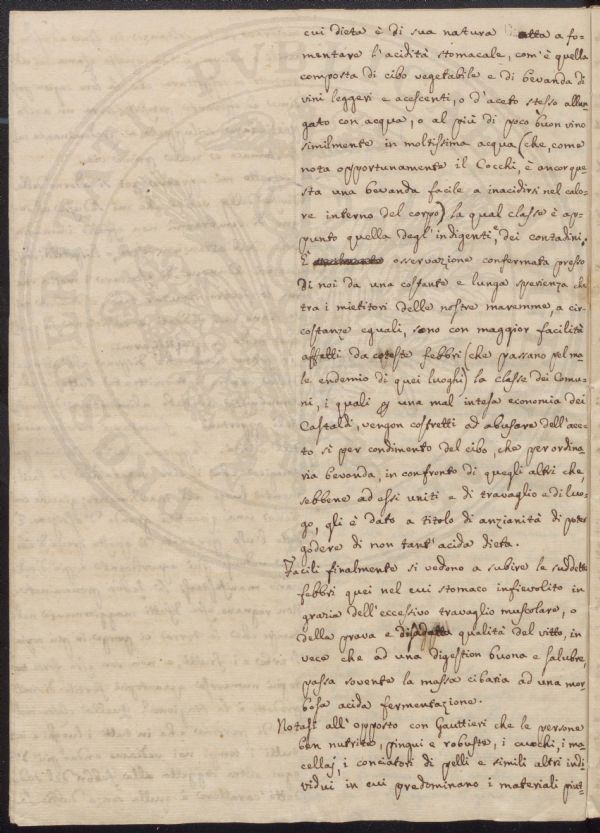 cui dieta è di sua natura atta a fo-
mentare l'acidità stomacale, com'è quella
composta di cibo vegetabile e di bevanda di
vini leggeri e acescenti, o d'aceto stesso allun
gato con acqua, o al più di poco buon vino
similmente in moltissima acqua (che, come
nota opportunamente il Cocchi, è ancor que
sta una bevanda facile a inacidirsi nel calo-
re interno del corpo) la qual classe è ap-
punto quella degl'indigenti, e dei contadini.
È osservazione confermata presso
di noi da una costante e lunga sperienza che
tra i mietitori delle nostre maremme, a cir-
costanze eguali, sono con maggior facilità
affetti da coteste febbri (che passano pel ma-
le endemio di quei luoghi) la classe dei Comu-
ni, i quali p una mal intesa economia dei
Castaldi, vengon costretti ad abusare dell'ace-
to sì per condimento del cibo, che per ordina-
ria bevanda, in confronto di quegli altri che,
sebbene ad essi uniti e di travaglio e di luo-
go, gli è dato a titolo di anzianità di poter
godere di non tant'acida dieta.
Facili finalmente si vedono a subire le suddette
febbri quei nel cui stomaco infievolito in
grazia dell'eccessivo travaglio muscolare, o
della prava e disadatta qualità del vitto, in
vece che ad una digestion buona e salubre,
passa sovente la massa cibaria ad una mor-
bosa acida fermentazione.
Notasi all'opposto con Gauttieri che le persone
ben nutrite, pingui e robuste, i cuochi, i ma
cellaj, i conciatori di pelli e simili altri indi
vidui in cui predominano i materiali piut-